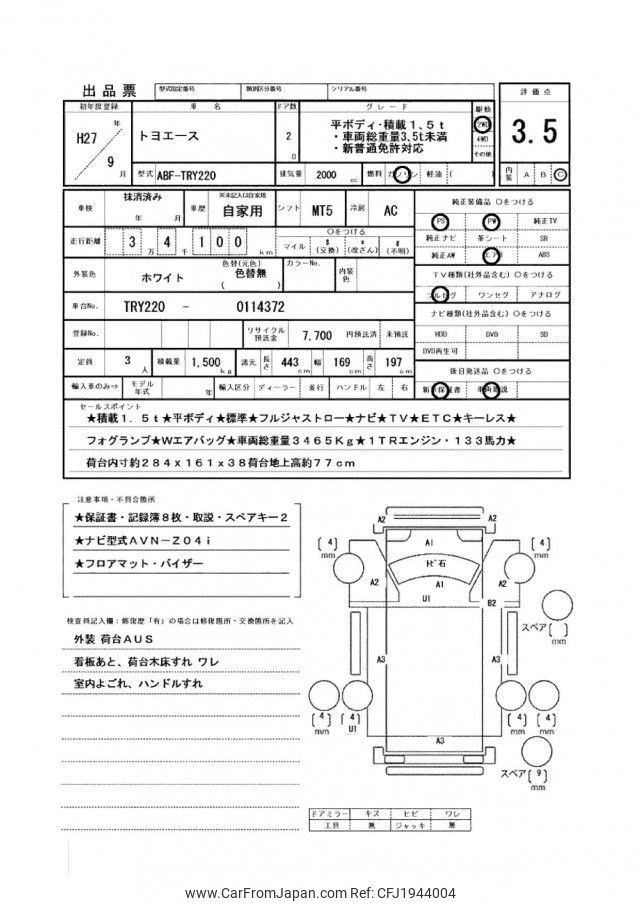 出品票 型式指定番号 類別区分番号 シリアル番号
評価点
3.5
初年度登録 車名 ドア数 グレード 駆動
H27 年 9 月
トヨエース
2 D
平ボディ・積載1,5t
・車両総重量3.5t未満
・新普通免許対応
2WD
4WD
その他
型式 ABF-TRY220 排気量 2000 cc 燃料 ガソリン 軽油 ( )
内装 A B C
車検 抹消済み 年 月 車歴 ※未記入は自家用 自家用 シフト MT5 冷房 AC
純正装備品 〇をつける
PS PW 純正TV
純正ナビ 革シート SR
純正AW エアB ABS
走行距離 3 万 4 千 1 0 0 km
〇をつける
マイル $ (交換) * (改ざん) # (不明)
外装色 ホワイト 色替(元色) 色替無 ( ) カラーNo. 内装色
TV種類(社外品含む) 〇をつける
フルセグ ワンセグ アナログ
車台No. TRY220 - 0114372
ナビ種類(社外品含む) 〇をつける
HDD DVD SD
DVD再生可
登録No. リサイクル預託金 7,700 円預託済 未預託
定員 3 人 積載量 1,500 kg 諸元 長さ 443 cm 幅 169 cm 高さ 197 cm
後日発送品 〇をつける
新車保証書 車両取説
輸入車のみ⇒ モデル年式 年 輸入区分 ディーラー 並行 ハンドル 左 右
セールスポイント
★積載1.5t★平ボディ★標準★フルジャストロー★ナビ★TV★ETC★キーレス★
フォグランプ★Wエアバッグ★車両総重量3465Kg★1TRエンジン・133馬力★
荷台内寸約284x161x38荷台地上高約77cm
注意事項・不具合箇所
★保証書・記録簿8枚・取説・スペアキー2
★ナビ型式AVN-Z04i
★フロアマット・バイザー
検査員記入欄:修復歴「有」の場合は修復箇所・交換箇所を記入
外装 荷台AUS
看板あと、荷台木床すれ ワレ
室内よごれ、ハンドルすれ
A2 A2
[4] mm A1 [4] mm
トビ石
A2 A1 A2
U1 B2
スペア[ ] mm
A3 A3
[4] mm [4] mm U1 [4] mm [4] mm
A3
スペア[9] mm
ドアミラー キズ ヒビ ワレ
工具 無 ジャッキ 無
www.CarFromJapan.com Ref: CFJ1944004